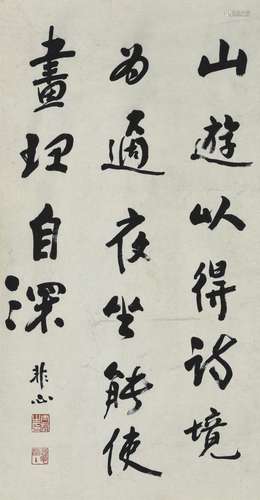 山遊以得詩境
為適夜坐能使
畫理自深
非心